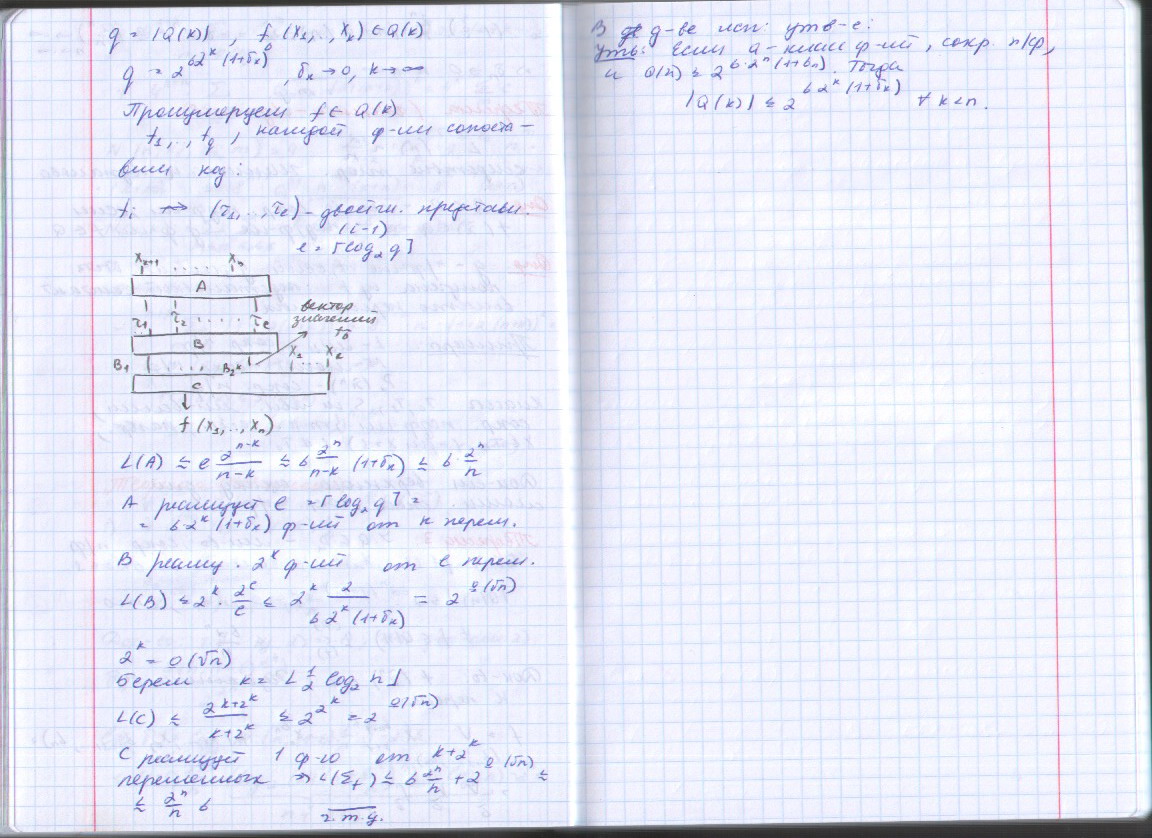 q = |Q(k)|, f(x₁, , xₖ) ∈ Q(k)
q = 2^{б2^k(1+δₖ)}, δₖ → 0, k → ∞
Пронумеруем f ∈ Q(k)
f₁, .., f_q, каждой ф-ии сопоста-
вим код:
fᵢ → (τ₁, .., τ_e) - двоичн. представл.
(i-1)
e = ⌈log₂ q⌉
x_{k+1} . . . . xₙ
A
τ₁ τ₂ . . . . . τ_e
вектор
значений
f_б
B
B₁ . . . B_{2^k}
x₁ . . . x_k
C
f(x₁, .., xₙ)
L(A) ≲ e 2^{n-k}/(n-k) ≲ б 2^n/(n-k) (1+δₖ) ≲ б · 2^n/n
A реализует e = ⌈log₂ q⌉ =
= б 2^k (1+δₖ) ф-ий от n перем.
B реализ. 2^k ф-ий от e перем.
L(B) ≲ 2^k · 2^e/e ≲ 2^k 2/(б 2^k (1+δₖ)) = 2^{o(√n)}
2^k = o(√n)
Берем k = ⌊½ log₂ n⌋
L(C) ≲ 2^{k+2^k}/(k+2^k) ≲ 2^{2^k} = 2^{o(√n)}
C реализует 1 ф-ю от k+2^k
переменных ⇒ L(Σ_f) ≲ б 2^n/n + 2^{o(√n)} ≲
≲ 2^n/n б
ч.т.д.
В д-ве исп. утв-е:
Утв: Если Q - класс ф-ий, сохр. п/ф,
и Q(n) ≲ 2^{б·2^n(1+δₙ)}. Тогда
|Q(k)| ≲ 2^{б2^k(1+δₖ)} ∀ k < n.